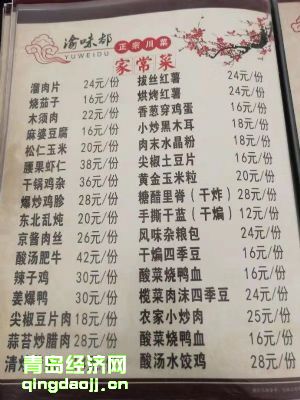 渝味都
YUWEIDU
正宗川菜
家常菜
溜肉片 24元/份
烧茄子 16元/份
木须肉 22元/份
麻婆豆腐 16元/份
松仁玉米 20元/份
腰果虾仁 38元/份
干锅鸡杂 36元/份
爆炒鸡胗 28元/份
东北乱炖 20元/份
京酱肉丝 26元/份
酸汤肥牛 42元/份
辣子鸡 30元/份
姜爆鸭 30元/份
尖椒豆片肉 18元/份
蒜苔炒腊肉 28元/份
清
拔丝红薯 24元/份
烘烤红薯 24元/份
香葱穿鸡蛋 16元/份
小炒黑木耳 18元/份
肉末水晶粉 18元/份
尖椒土豆片 16元/份
黄金玉米粒 20元/份
糖醋里脊（干炸） 28元/份
手撕干蓝（干煸） 16元/份
风味杂粮包 24元/份
干煸四季豆 16元/份
酸菜烧鸭血 16元/份
榄菜肉沫四季豆 24元/份
农家小炒肉 25元/份
酸菜烧鸭血 16元/份
酸汤水饺鸡 28元/份
青岛经济网
qingdaojj.cn